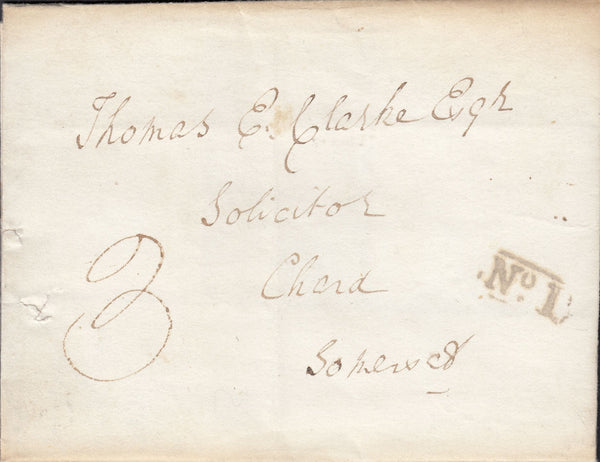 Thomas E. Clarke Esqr
Solicitor
Chard
Somerset
3
No. 1